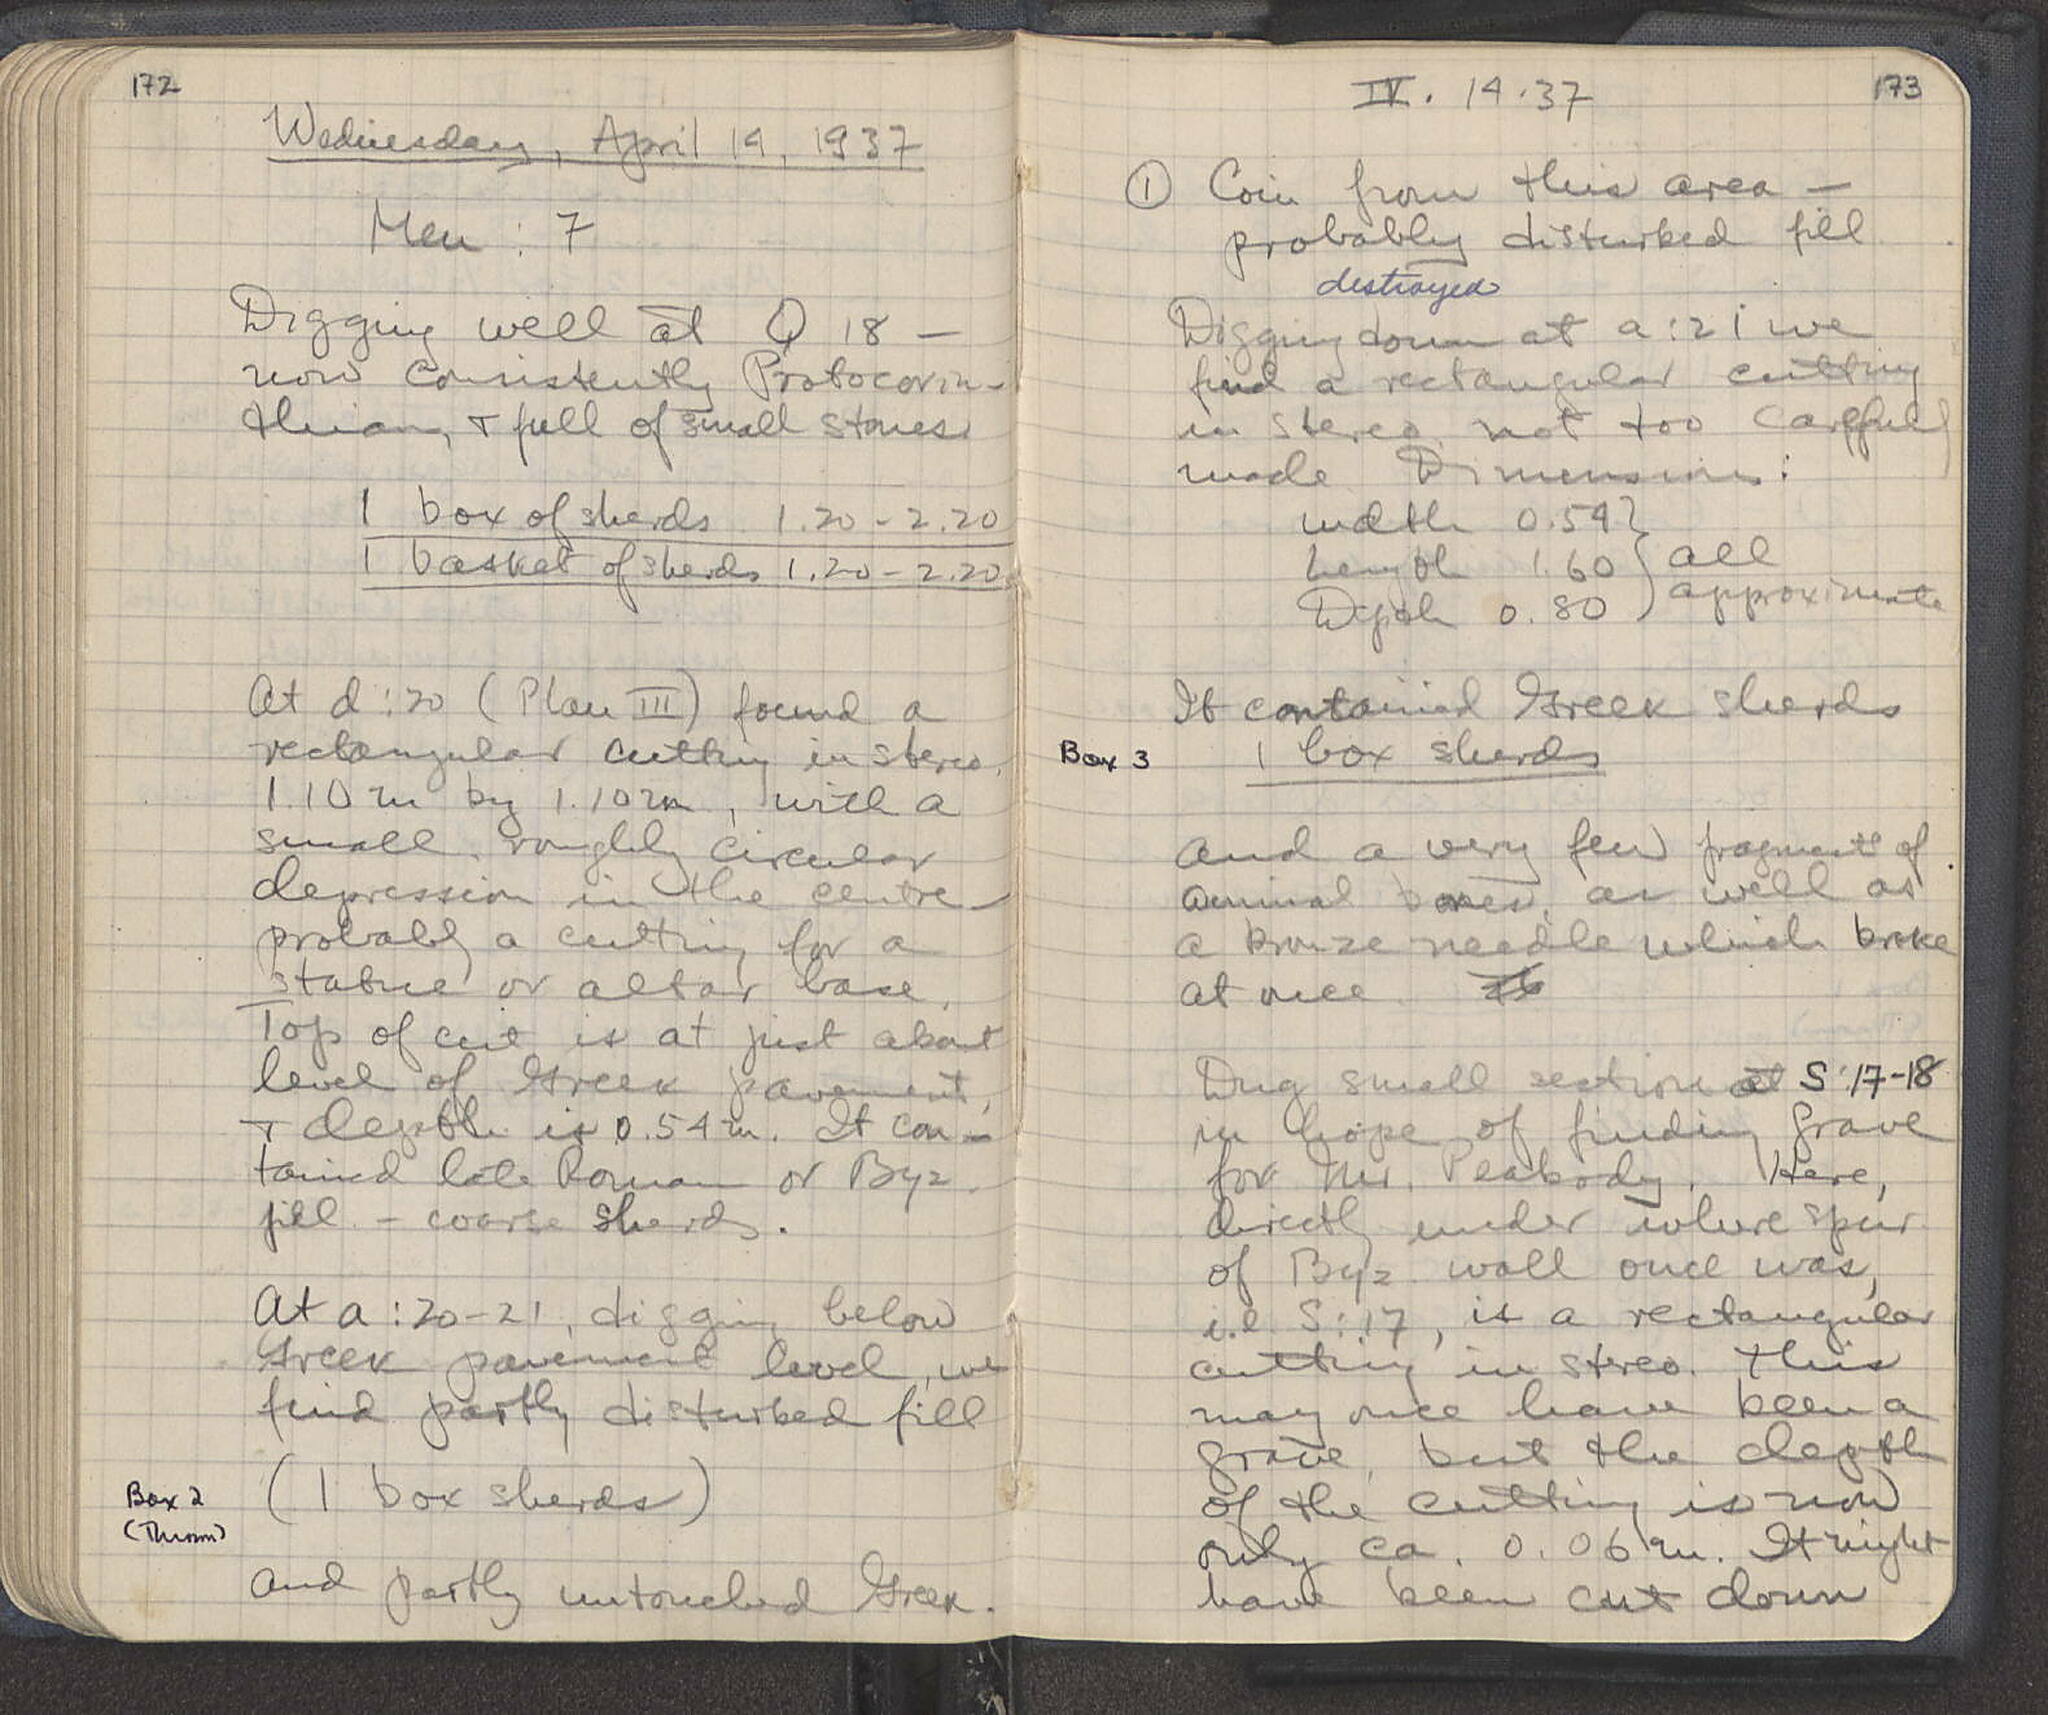 172
Wednesday, April 14, 1937
Men : 7
Digging well at Q 18 —
now consistently Protocorin-
thian, + full of small stones.
1 box of sherds 1.20 - 2.20
1 basket of sherds 1.20 - 2.20
At d:20 (Plan III) found a
rectangular cutting in stereo,
1.10 m by 1.10 m, with a
small, roughly circular
depression in the centre —
probably a cutting for a
statue or altar base.
Top of cut is at just about
level of Greek pavement,
+ depth is 0.54 m. It con-
tained late Roman or Byz.
fill - coarse sherds.
At a:20-21, digging below
Greek pavement level, we
find partly disturbed fill
(1 box sherds)
Box 2
(Thrown)
and partly untouched Greek.
IV. 14.37
173
① Coin from this area —
probably disturbed fill
destroyed
Digging down at a:21 we
find a rectangular cutting
in stereo, not too carefully
made. Dimensions:
width 0.54 }
Length 1.60 } all
Depth 0.80 } approximate
It contained Greek sherds
Box 3 1 box sherds
and a very few fragments of
animal bones, as well as
a bronze needle which broke
at once.
Dug small section at S:17-18
in hope of finding grave
for Mr. Peabody. Here,
directly under where spur
of Byz wall once was,
i.e. S:17, is a rectangular
cutting in stereo. This
may once have been a
grave, but the depth
of the cutting is now
only ca. 0.06 m. It might
have been cut down